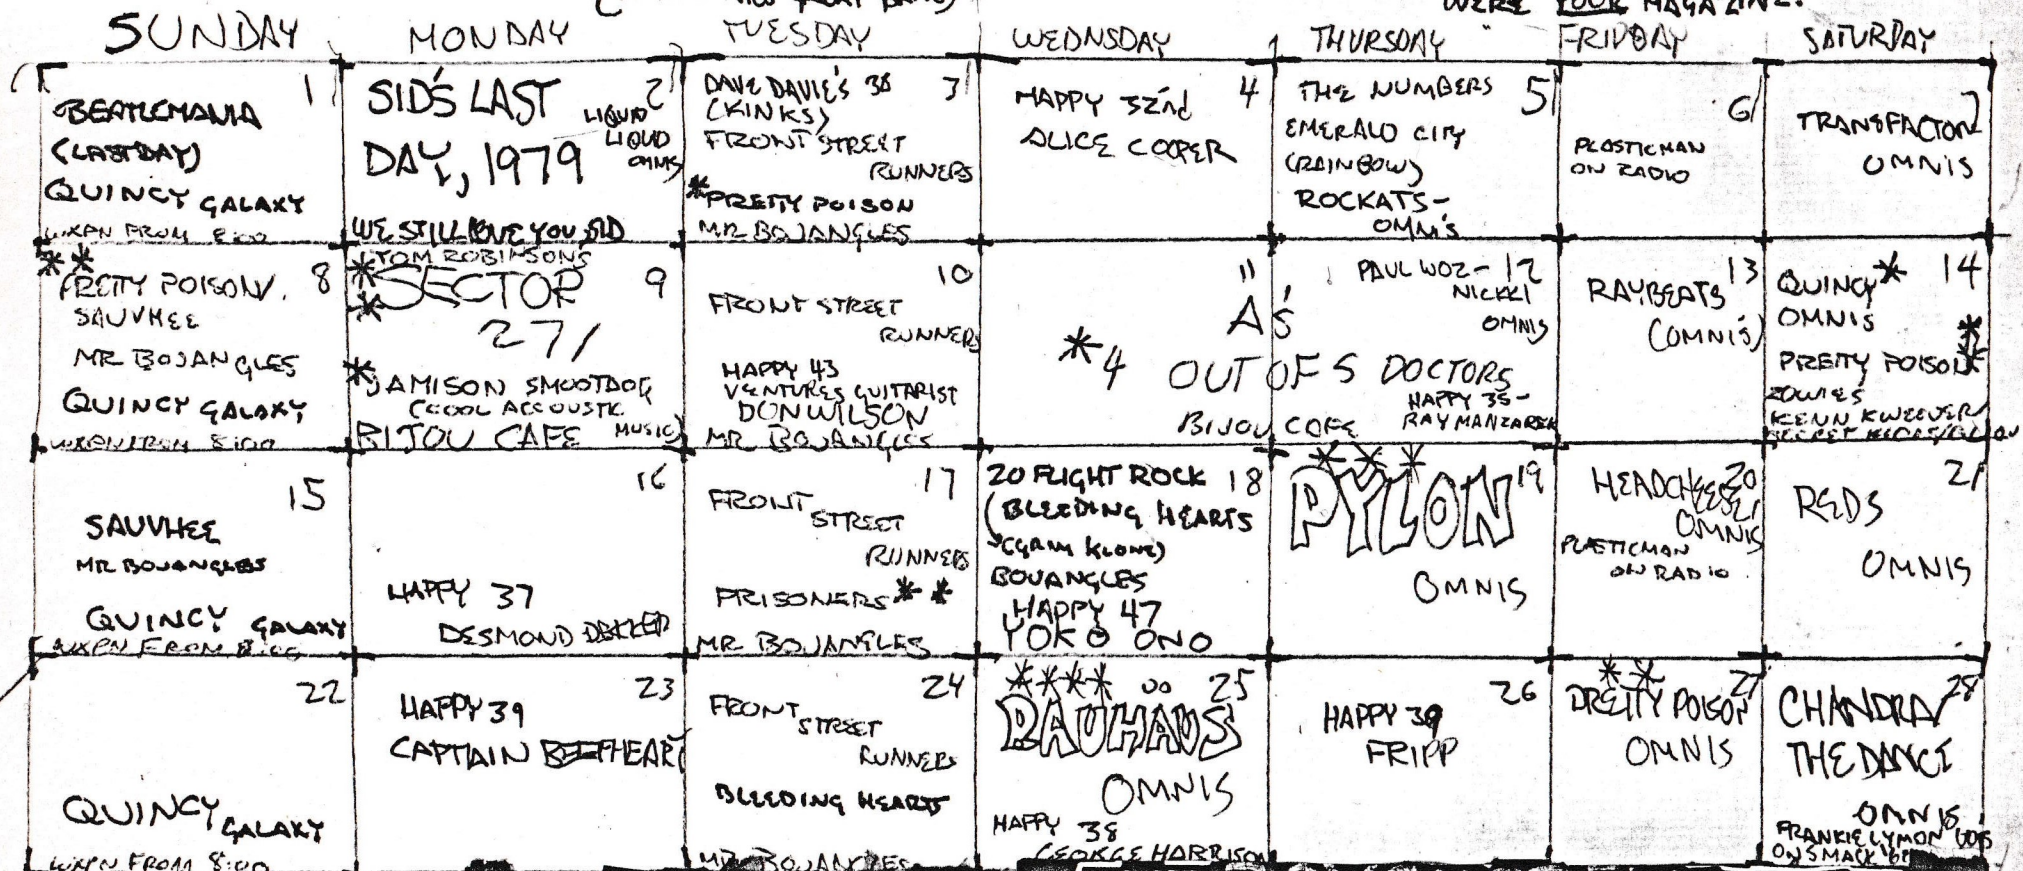 WERE YOUR MAGAZINE!
SUNDAY MONDAY TUESDAY WEDNSDAY THURSDAY FRIDAY SATURDAY
1
BEATLEMANIA
(LAST DAY)
QUINCY GALAXY
WXPN FROM 8:00
2
SID'S LAST
DAY, 1979
LIQUID
LIQUID
OMNIS
WE STILL LOVE YOU SID
DAVE DAVIE'S 38 3
(KINKS)
FRONT STREET
RUNNERS
*PRETTY POISON
MR BOJANGLES
HAPPY 32nd 4
ALICE COOPER
THE NUMBERS 5
EMERALD CITY
(RAINBOW)
ROCKATS-
OMNI'S
6
PLASTICMAN
ON RADIO
7
TRANSFACTOR
OMNIS
**
PRETTY POISON/ 8
SAUVHEE
MR BOJANGLES
QUINCY GALAXY
WXPN FROM 8:00
TOM ROBINSONS
**SECTOR 9
27/
*JAMISON SMOOTDOG
(COOL ACCOUSTIC
MUSIC)
BIJOU CAFE
10
FRONT STREET
RUNNERS
HAPPY 43
VENTURES GUITARIST
DON WILSON
MR BOJANGLES
11
A'S
*4 OUT OF 5 DOCTORS
BIJOU CAFE
PAUL WOZ- 12
NICKKI
OMNIS
HAPPY 35-
RAY MANZAREK
13
RAYBEATS
(OMNI'S)
QUINCY* 14
OMNIS
PRETTY POISON**
ZOWIES
KENN KWEEDER/
SECRET KIDS/BIJOU
15
SAUVHEE
MR BOJANGLES
QUINCY GALAXY
WXPN FROM 8:00
16
HAPPY 37
DESMOND DEKKER
17
FRONT STREET
RUNNERS
PRISONERS**
MR BOJANGLES
20 FLIGHT ROCK 18
(BLEEDING HEARTS
BOJANGLES
HAPPY 47
YOKO ONO
***
PYLON 19
OMNIS
20
HEADCHEESE/
OMNIS
PLASTICMAN
ON RADIO
21
REDS
OMNIS
22
QUINCY GALAXY
WXPN FROM 8:00
23
HAPPY 39
CAPTAIN BEEFHEART
24
FRONT STREET
RUNNERS
BLEEDING HEARTS
MR BOJANGLES
**** 25
BAUHAUS
OMNIS
HAPPY 38
GEORGE HARRISON
26
HAPPY 39
FRIPP
** 27
PRETTY POISON
OMNIS
28
CHANDRA/
THE DANCE
OMNIS
FRANKIE LYMON
ON SMACK